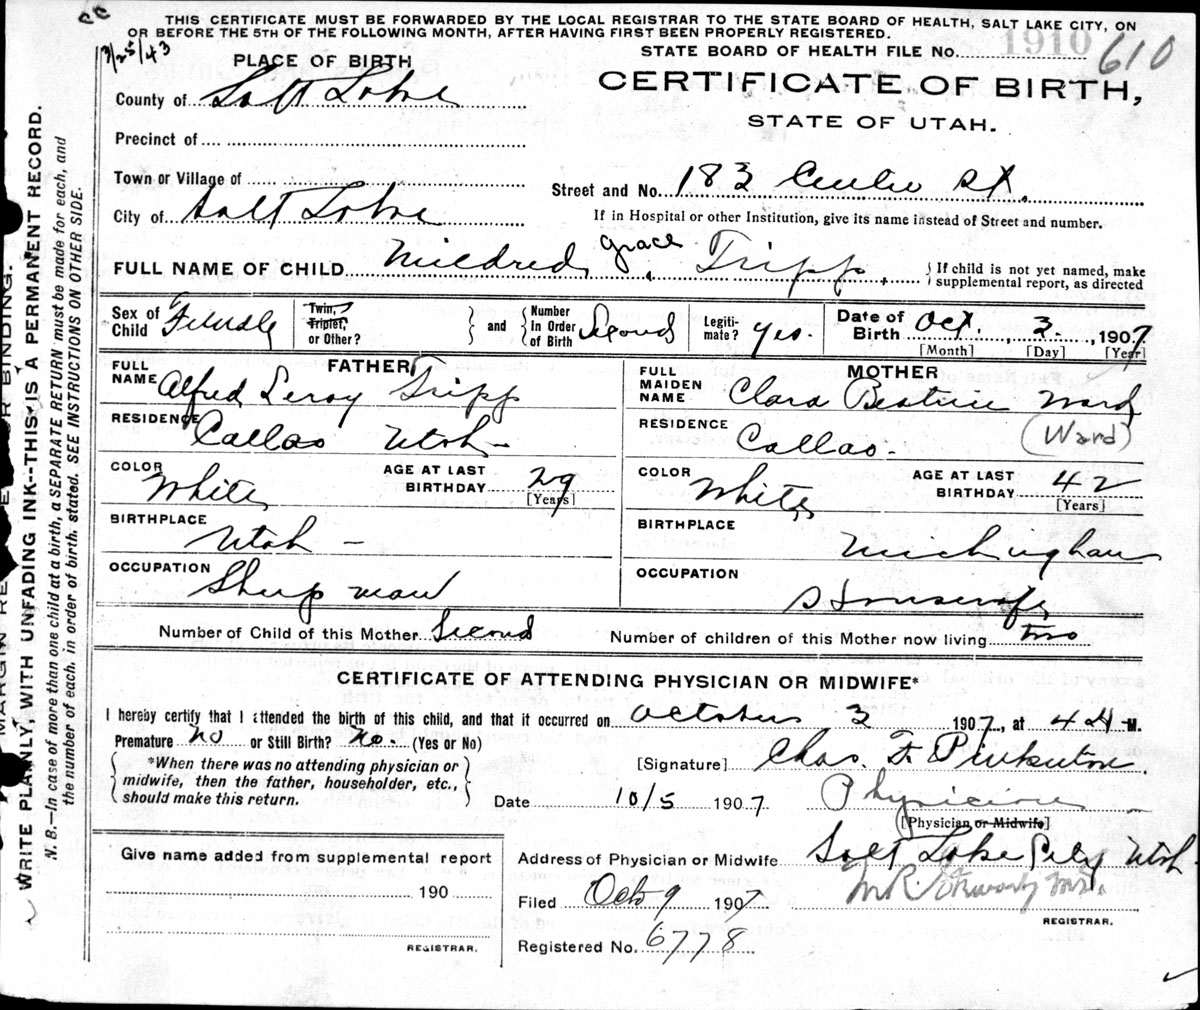 THIS CERTIFICATE MUST BE FORWARDED BY THE LOCAL REGISTRAR TO THE STATE BOARD OF HEALTH, SALT LAKE CITY, ON
OR BEFORE THE 5TH OF THE FOLLOWING MONTH, AFTER HAVING FIRST BEEN PROPERLY REGISTERED.
cc
3/25/43
STATE BOARD OF HEALTH FILE No. 1910 610
PLACE OF BIRTH
CERTIFICATE OF BIRTH,
STATE OF UTAH.
County of Salt Lake
Precinct of
Town or Village of
Street and No. 183 Center St.
City of Salt Lake
If in Hospital or other Institution, give its name instead of Street and number.
FULL NAME OF CHILD Mildred Grace Tripp
If child is not yet named, make
supplemental report, as directed
Sex of
Child Female
Twin,
Triplet,
or Other?
and
Number
in Order
of Birth Second
Legiti-
mate? Yes.
Date of
Birth Oct. 3, 1907
[Month] [Day] [Year]
FATHER
FULL
NAME Alfred Leroy Tripp
RESIDENCE Callao Utah
COLOR White
AGE AT LAST
BIRTHDAY 29
[Years]
BIRTHPLACE Utah
OCCUPATION Sheep man
MOTHER
FULL
MAIDEN
NAME Clara Beatrice Ward
RESIDENCE Callao (Ward)
COLOR White
AGE AT LAST
BIRTHDAY 42
[Years]
BIRTHPLACE Michighan
OCCUPATION Housewife
Number of Child of this Mother Second
Number of children of this Mother now living two
CERTIFICATE OF ATTENDING PHYSICIAN OR MIDWIFE*
I hereby certify that I attended the birth of this child, and that it occurred on October 3 1907, at 4 A M.
Premature No or Still Birth? No. (Yes or No)
*When there was no attending physician or
midwife, then the father, householder, etc.,
should make this return.
[Signature] Chas. F. Pinkerton
Date 10/5 1907 Physician
[Physician or Midwife]
Give name added from supplemental report
190
REGISTRAR.
Address of Physician or Midwife Salt Lake City Utah
Filed Oct 9 1907
REGISTRAR.
Registered No. 6778
MARGIN RE
OR BINDING.
WRITE PLAINLY, WITH UNFADING INK--THIS IS A PERMANENT RECORD.
N. B.—In case of more than one child at a birth, a SEPARATE RETURN must be made for each, and
the number of each, in order of birth, stated. SEE INSTRUCTIONS ON OTHER SIDE.